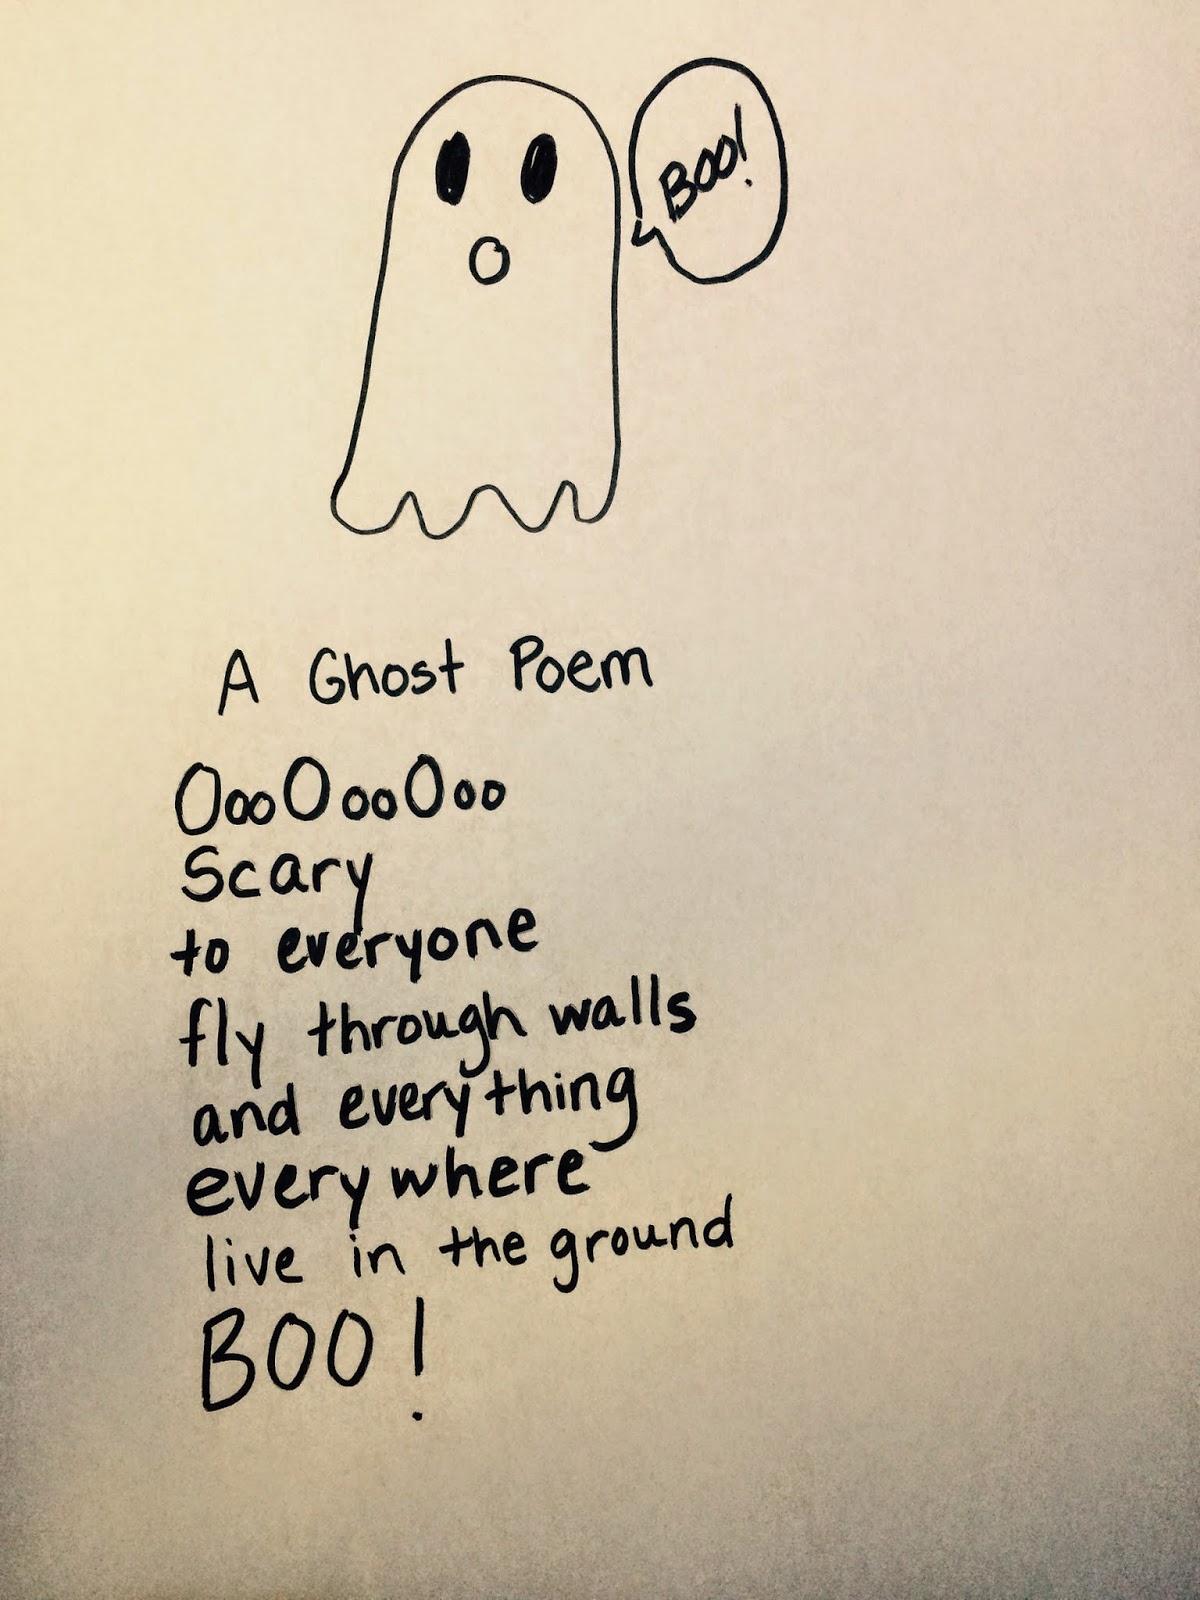 BOO!
A Ghost Poem
OooOooOoo
Scary
to everyone
fly through walls
and everything
everywhere
live in the ground
BOO!